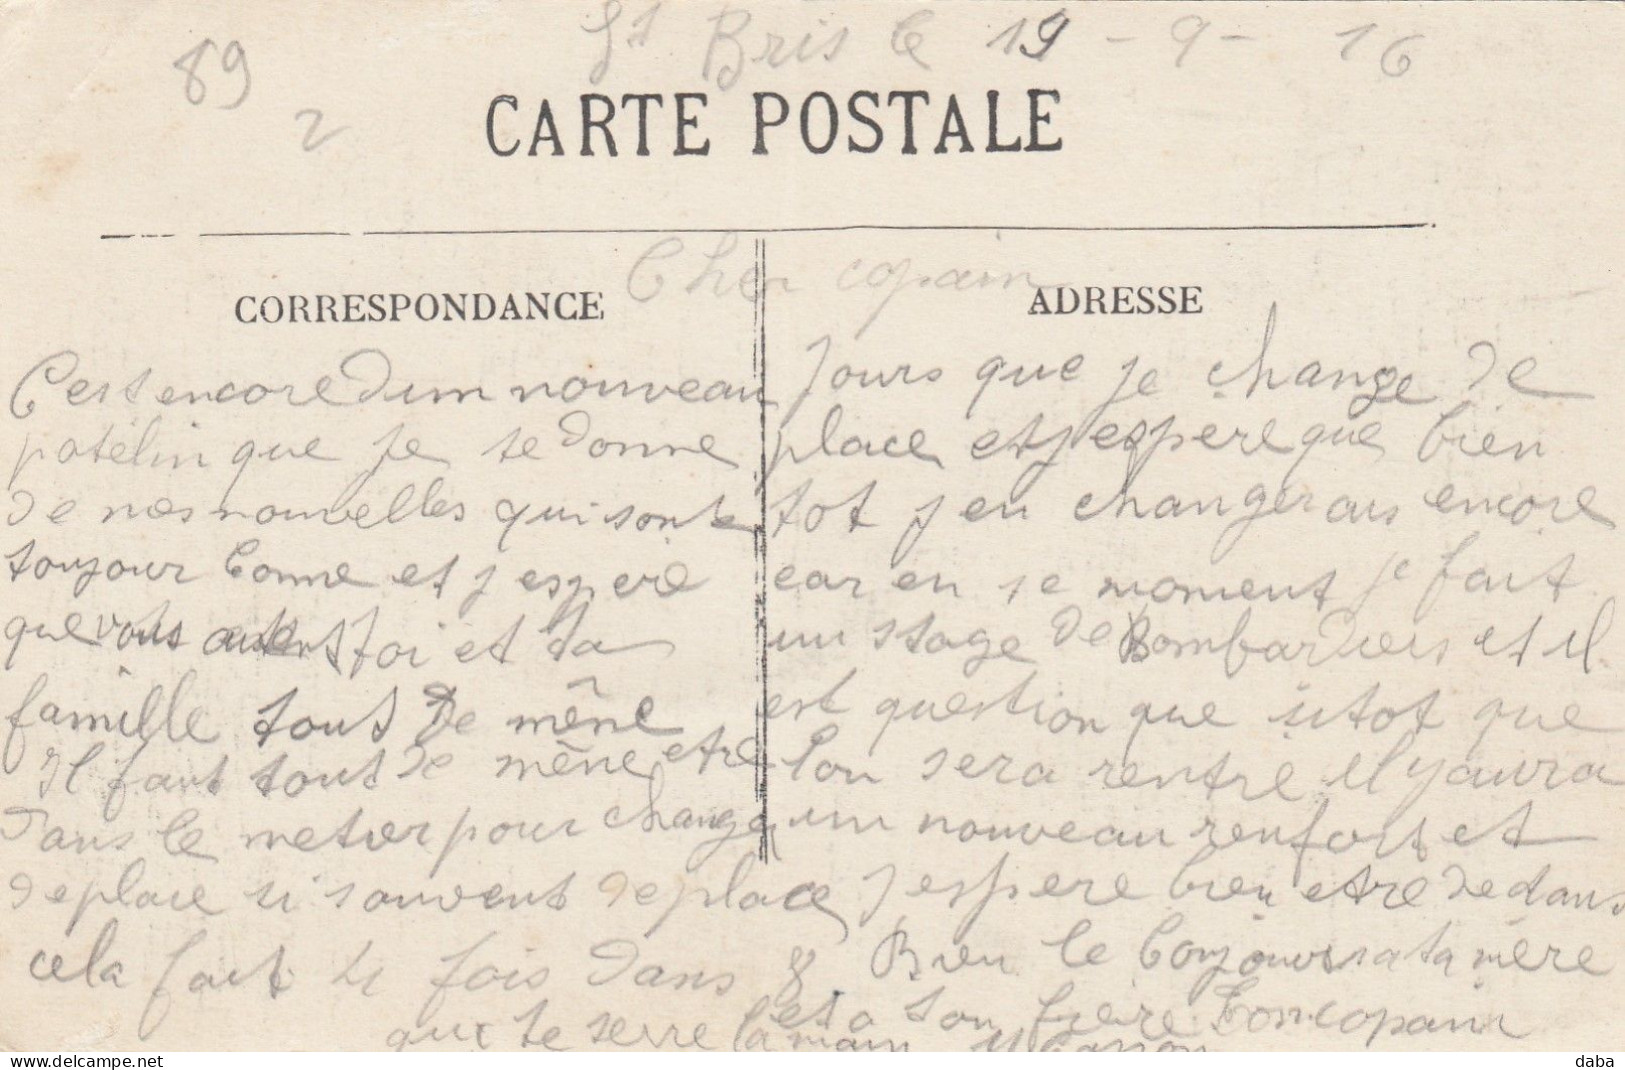 St Bris le 19 - 9 - 16
89
2
CARTE POSTALE
Cher copain
CORRESPONDANCE
C'est encore dum nouveau
patelin que je te donne
de mes nouvelles qui sont
toujour bonne et j espere
que vous toi et ta
famille tout de même
Il faut tout de même etre
dans le metier pour change
de place si souvent de place
cela fait 4 fois dans 8
ADRESSE
jours que je change de
place et j espere que bien
tot j en changerais encore
car en se moment je fait
un stage de Bombardiers et il
est question que sitot que
l'on sera rentre il y aura
un nouveau renfort et
j espere bien etre dedans
Bien le bonjours a ta mère
et a ton frère ton copain
qui te serre la main
daba